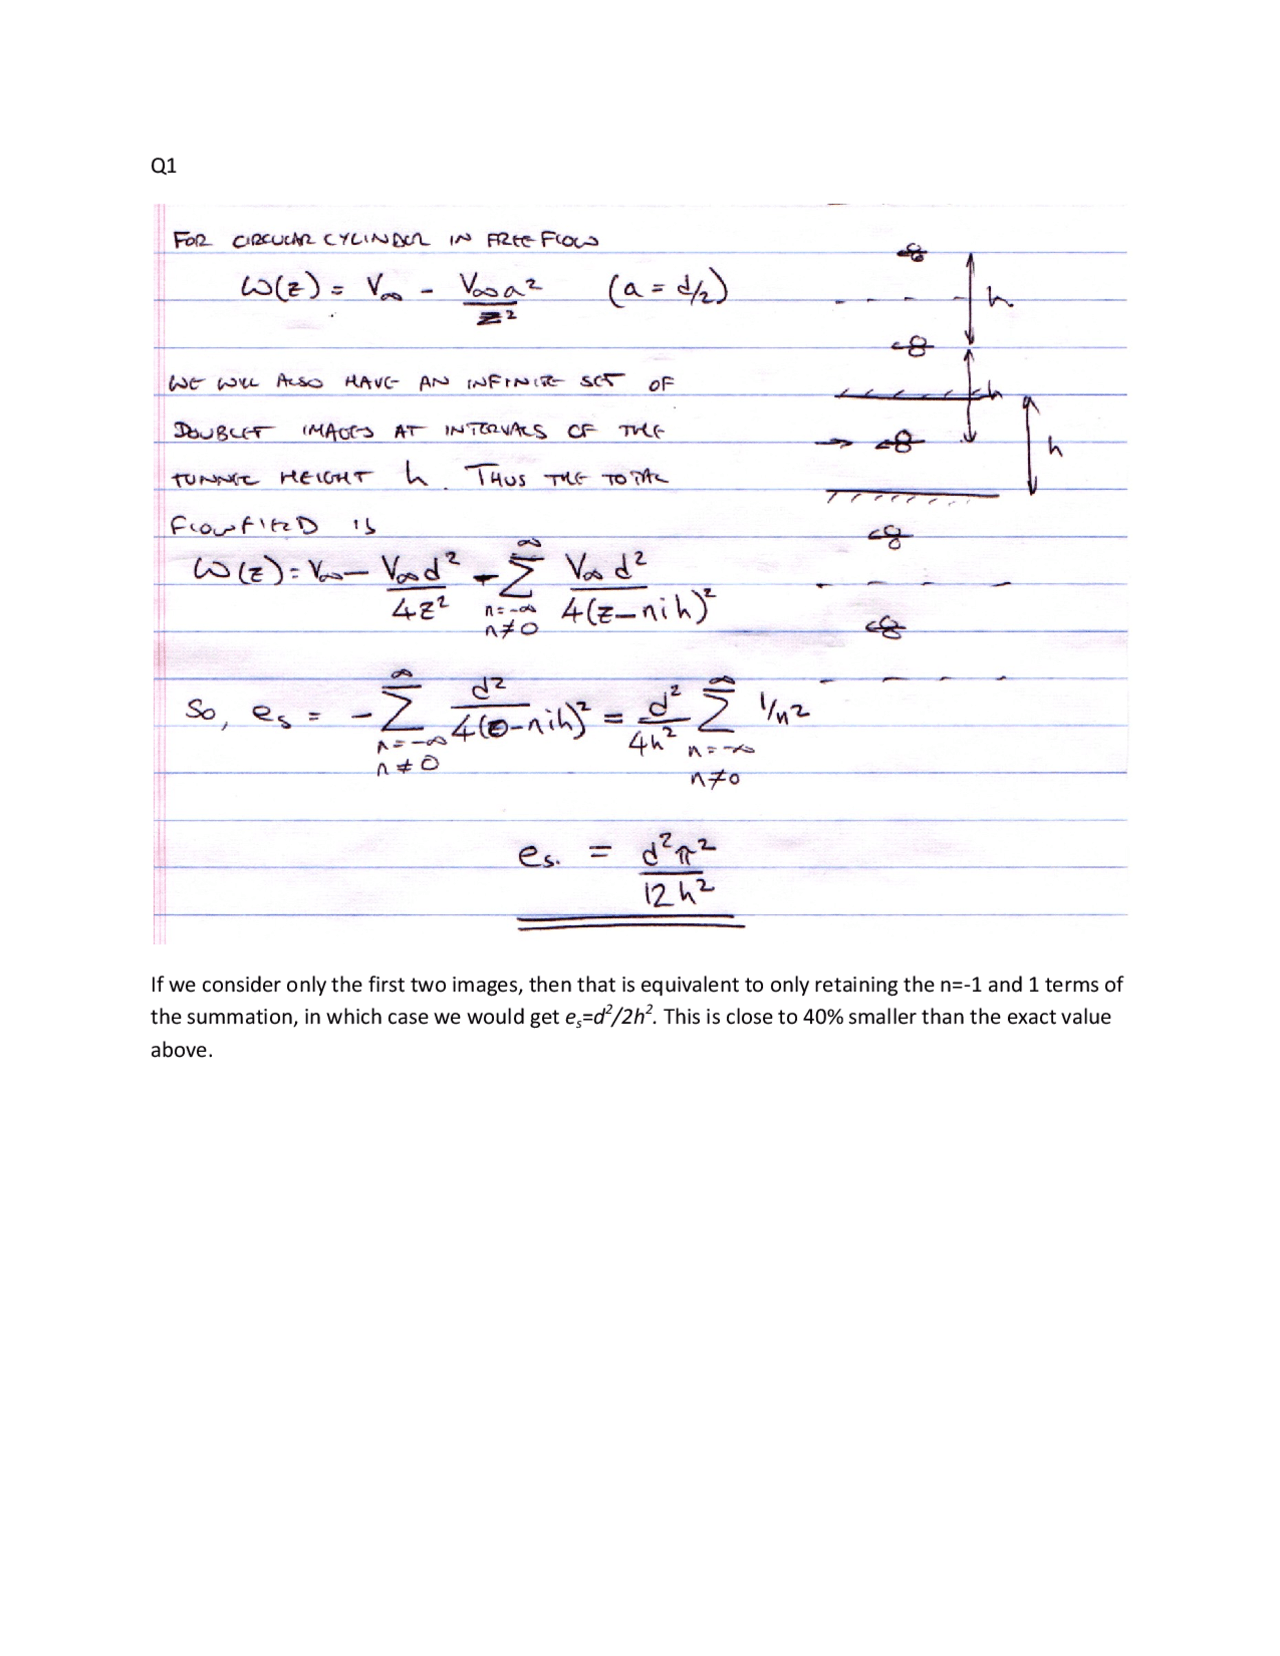 Q1
FOR CIRCULAR CYLINDER IN FREE FLOW
W(z) = V∞ - V∞a²/z² (a = d/2)
WE WILL ALSO HAVE AN INFINITE SET OF
DOUBLET IMAGES AT INTERVALS OF THE
TUNNEL HEIGHT h. THUS THE TOTAL
FLOWFIELD IS
W(z) = V∞ - V∞d²/4z² - ∑ n=-∞ n≠0 ∞ V∞d²/4(z-nih)²
So, es = - ∑ n=-∞ n≠0 ∞ d²/4(0-nih)² = d²/4h² ∑ n=-∞ n≠0 ∞ 1/n²
es. = d²π²/12h²
h
h
h
If we consider only the first two images, then that is equivalent to only retaining the n=-1 and 1 terms of
the summation, in which case we would get es=d²/2h². This is close to 40% smaller than the exact value
above.